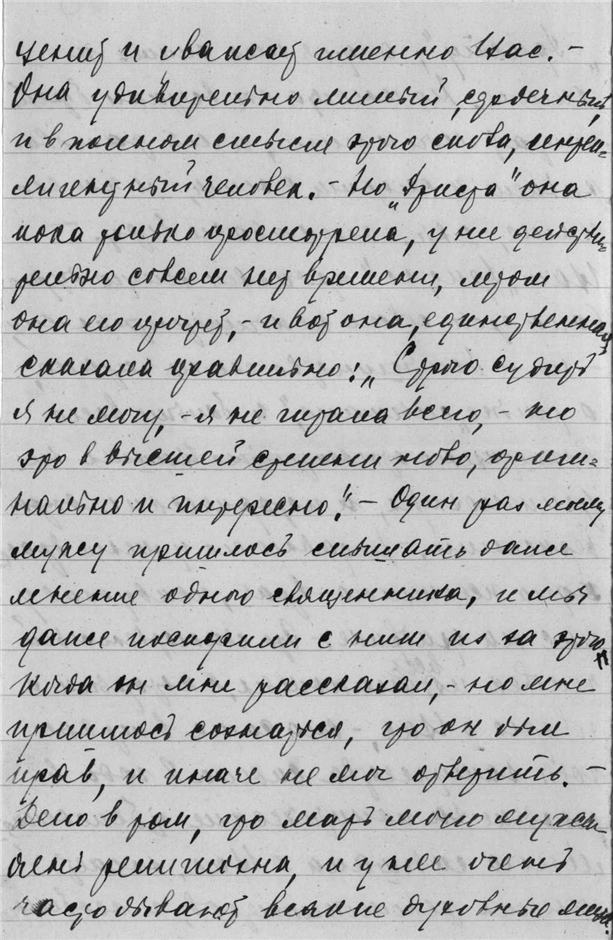 ценит и уважает именно Нас. –
Она удивительно милый, сердечный,
и в полном смысле этого слова, интел=
лигентный человек. – Но „Христа" она
пока только просмотрела, у нее действи=
тельно совсем нет времени, летом
она его прочтет, – и вот она, единственная,
сказала правильно: „Строго судить
я не могу, – я не читала всего, – но
это в высшей степени ново, ориги=
нально и интересно". – Один раз моему
мужу пришлось слышать даже
мнение одного священника, и мы
даже поспорили с ним из за этого,
когда он мне рассказал, – но мне
пришлось сознаться, что он был
прав, и иначе не мог ответить. –
Дело в том, что мать моего мужа
очень религиозна, и у нее очень
часто бывают всякие духовные лица.